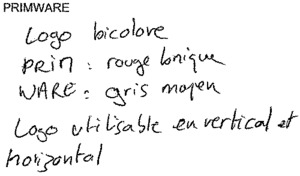 PRIMWARE
Logo bicolore
PRIM : rouge tonique
WARE : gris moyen
Logo utilisable en vertical et
horizontal